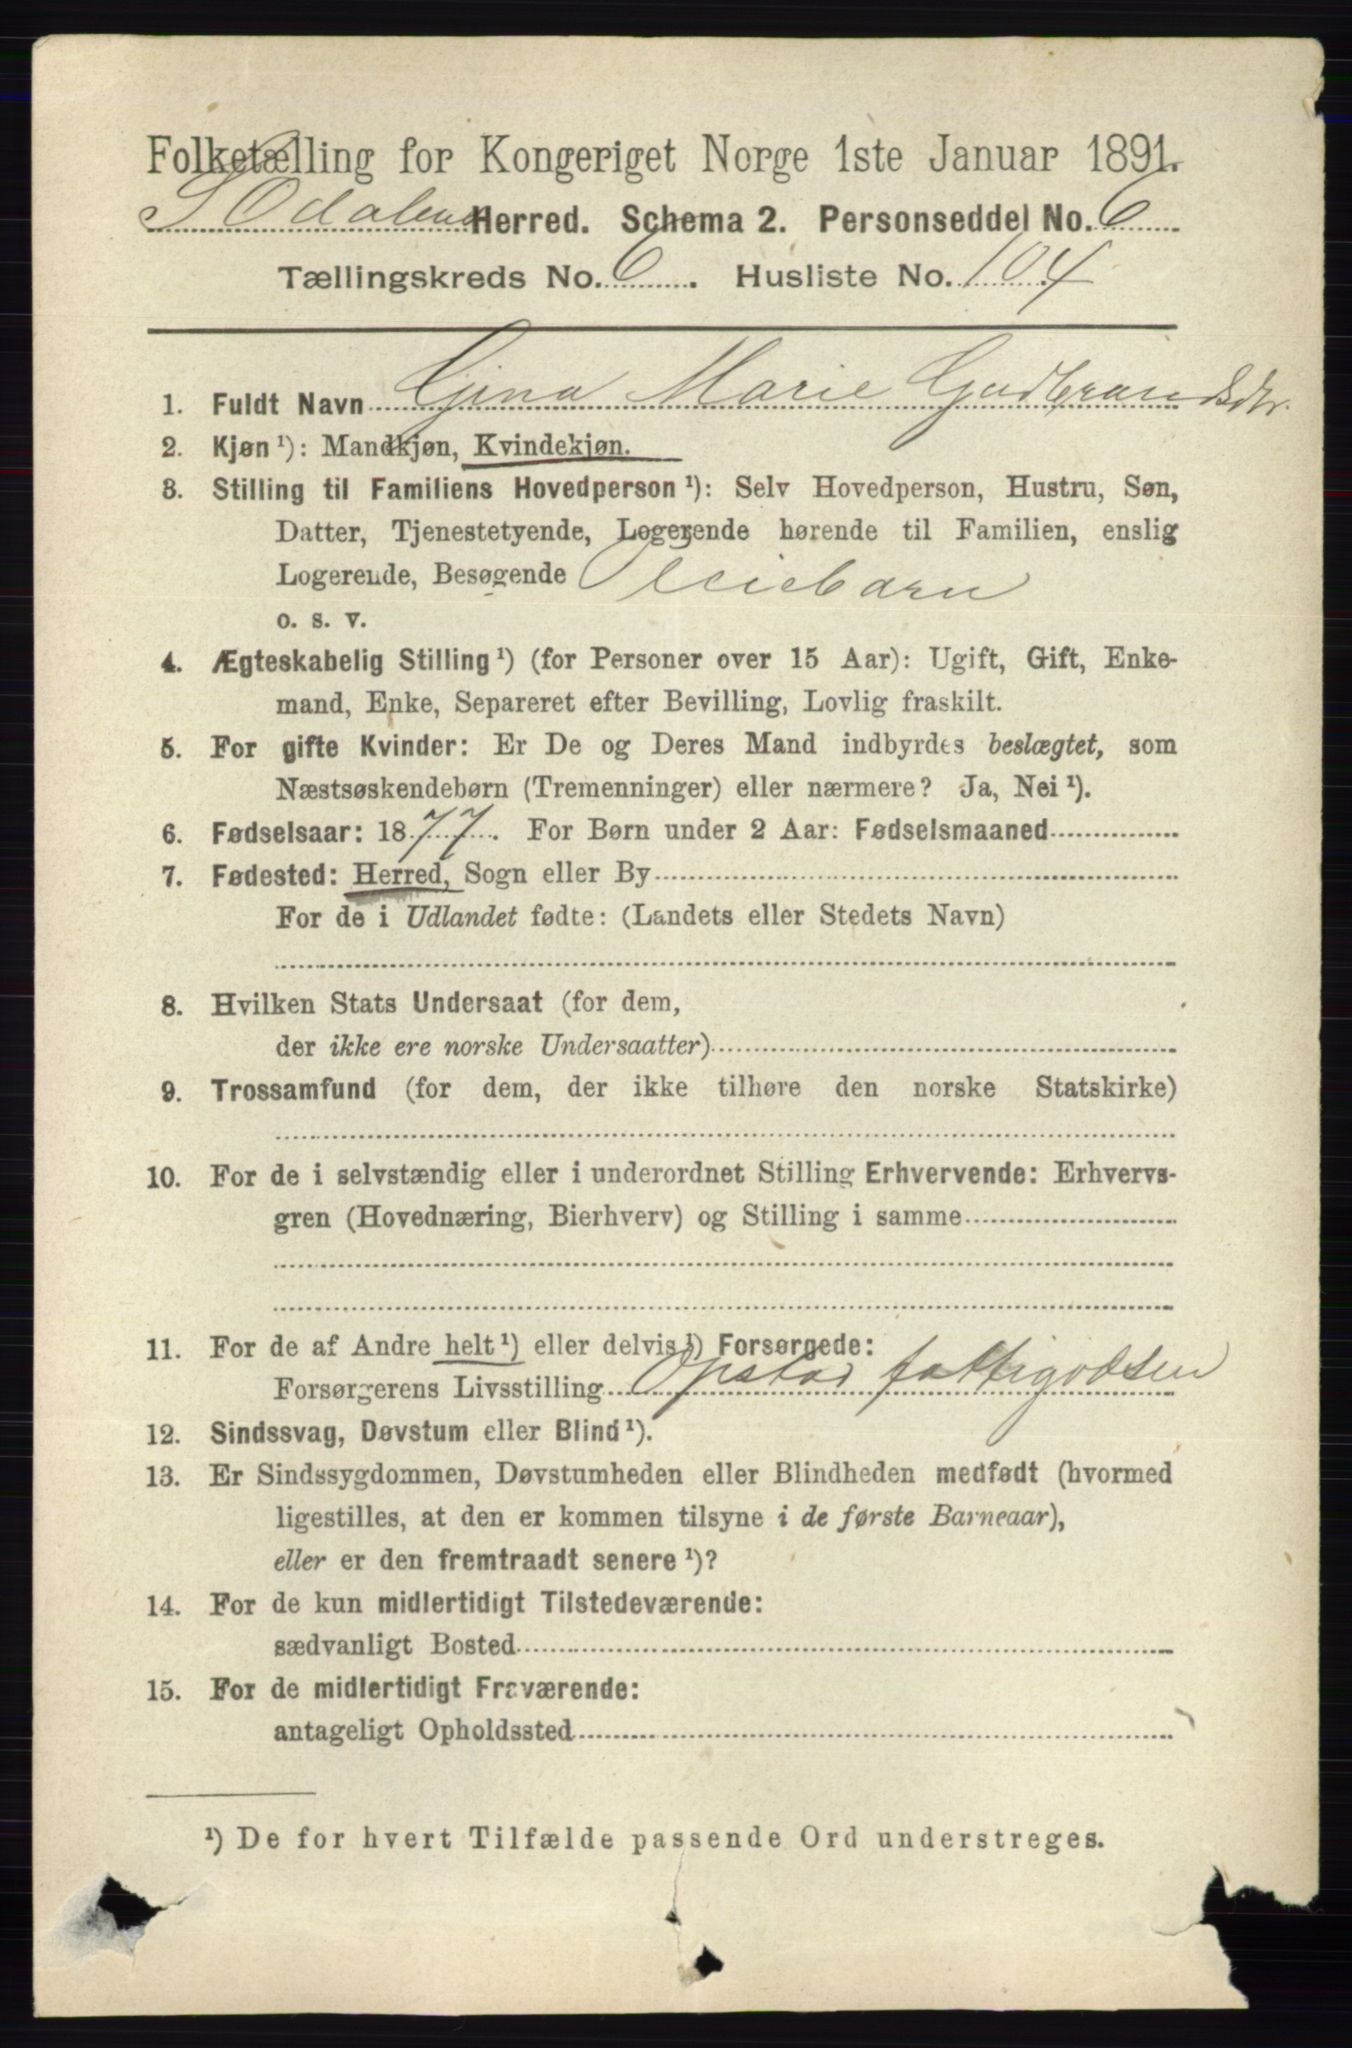 Folketælling for Kongeriget Norge 1ste Januar 1891.
S. Odalens Herred. Schema 2. Personseddel No. 6
Tællingskreds No. 6. Husliste No. 104
1. Fuldt Navn Gina Marie Gudbrandsdtr.
2. Kjøn ¹): Mandkjøn, Kvindekjøn.
3. Stilling til Familiens Hovedperson ¹): Selv Hovedperson, Hustru, Søn,
Datter, Tjenestetyende, Logerende hørende til Familien, enslig
Logerende, Besøgende Pleiebarn
o. s. v.
4. Ægteskabelig Stilling ¹) (for Personer over 15 Aar): Ugift, Gift, Enke-
mand, Enke, Separeret efter Bevilling, Lovlig fraskilt.
5. For gifte Kvinder: Er De og Deres Mand indbyrdes beslægtet, som
Næstsøskendebørn (Tremenninger) eller nærmere? Ja, Nei ¹).
6. Fødselsaar: 1877. For Børn under 2 Aar: Fødselsmaaned
7. Fødested: Herred, Sogn eller By
For de i Udlandet fødte: (Landets eller Stedets Navn)
8. Hvilken Stats Undersaat (for dem,
der ikke ere norske Undersaatter)
9. Trossamfund (for dem, der ikke tilhøre den norske Statskirke)
10. For de i selvstændig eller i underordnet Stilling Erhvervende: Erhvervs-
gren (Hovednæring, Bierhverv) og Stilling i samme
11. For de af Andre helt ¹) eller delvis ¹) Forsørgede:
Forsørgerens Livsstilling Opstad fattigvæsen
12. Sindssvag, Døvstum eller Blind ¹).
13. Er Sindssygdommen, Døvstumheden eller Blindheden medfødt (hvormed
ligestilles, at den er kommen tilsyne i de første Barneaar),
eller er den fremtraadt senere ¹)?
14. For de kun midlertidigt Tilstedeværende:
sædvanligt Bosted
15. For de midlertidigt Fraværende:
antageligt Opholdssted
¹) De for hvert Tilfælde passende Ord understreges.